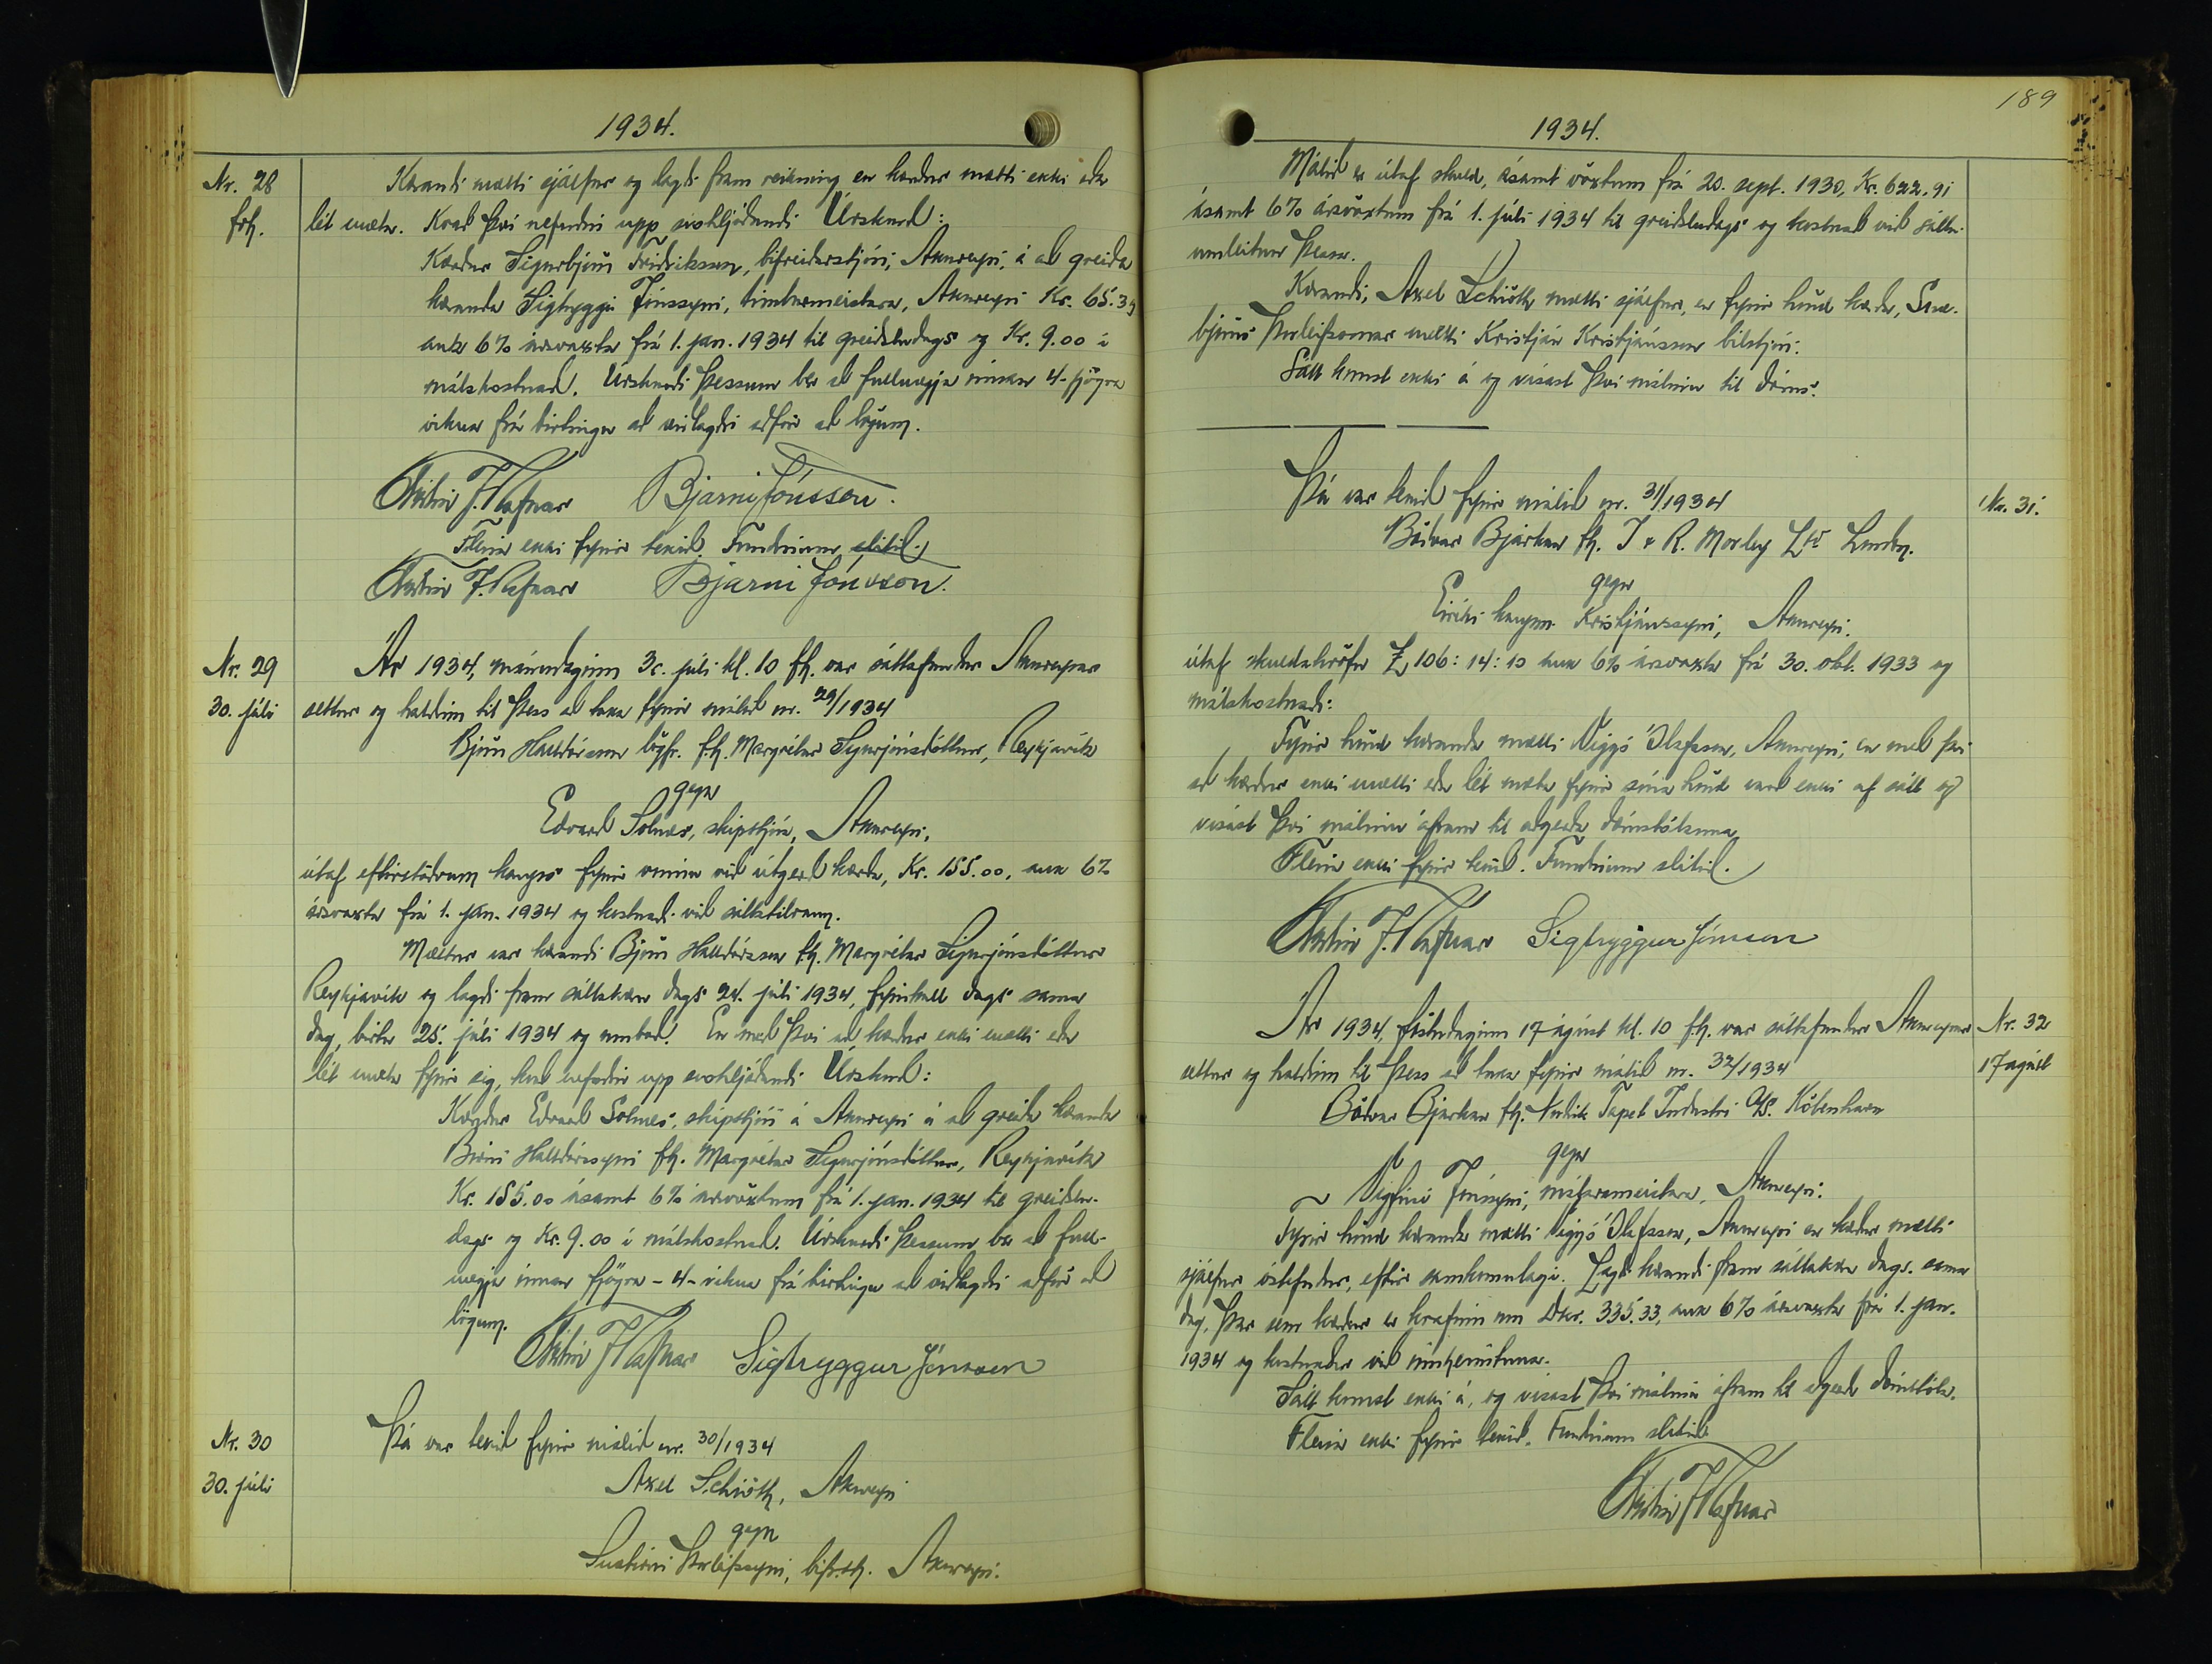 1934.
Nr. 28
frh.
Kærandi mætti sjálfur og lagði fram reikning en kærður mætti ekki eða
lét mæta. Kvað því nefndin upp svohljóðandi Úrskurð:
Kærður Sigurbjörn Friðriksson, bifreiðarstjóri, Akureyri, á að greiða
kæranda Sigtryggi Jónssyni, timburmeistara, Akureyri Kr. 65.35
auk 6% ársvaxta frá 1. jan. 1934 til greiðsludags og Kr. 9.00 í
málskostnað. Úrskurði þessum ber að fullnægja innan 4-fjögra
vikna frá birtingu að viðlagðri aðför að lögum.
Kristin J. Hafnar Bjarni Jónsson.
Fleira ekki fyrir tekið. Fundinum slitið.
Kristin J. Hafnar Bjarni Jónsson.
Nr. 29
30. júli
Ár 1934, mánudaginn 30. júli kl. 10 fh. var sáttafundur Akureyrar
settur og haldinn til þess að taka fyrir málið nr. 29/1934
Björn Halldórsson lögfr. fh. Margrétar Sigurjónsdóttur, Reykjavík
gegn
Edvard Solnes, skipstjóra, Akureyri,
útaf eftirstöðvum kaups fyrir vinnu við útgerð kærða, Kr. 155.00, auk 6%
ársvaxta frá 1. jan. 1934 og kostnaði við sáttatilraun.
Mættur var kærandi Björn Halldórsson fh. Margrétar Sigurjónsdóttur
Reykjavík og lagði fram sáttakæru dags 24. júli 1934, fyrirkall dags sama
dag, birta 25. júli 1934 og umboð. En með því að kærður ekki mætti eða
lét mæta fyrir sig, kvað nefndin upp svohljóðandi Úrskurð:
Kærður Edvard Solnes, skipstjóri á Akureyri á að greiða kæranda
Birni Halldórssyni fh. Margrétar Sigurjónsdóttur, Reykjavík
Kr. 155.00 ásamt 6% ársvöxtum frá 1. jan. 1934 til greiðslu-
dags og Kr. 9.00 í málskostnað. Úrskurði þessum ber að full-
nægja innan fjögra - 4 - vikna frá birtingu að viðlagðri aðför að
lögum.
Kristin J. Hafnar Sigtryggur Jónsson
Nr. 30
30. júli
Þá var tekið fyrir málið nr. 30/1934
Axel Schiöth, Akureyri
gegn
Snæbirni Þorleifssyni, bifr.stj. Akureyri.
189
1934.
Málið er útaf skuld, ásamt vöxtum frá 20. sept. 1930, Kr. 622.91
ásamt 6% ársvöxtum frá 1. júli 1934 til greiðsludags og kostnað við sátta-
umleitun þessa.
Kærandi, Axel Schiöth mætti sjálfur, en fyrir hönd kærða, Snæ-
bjarnar Þorleifssonar mætti Kristján Kristjánsson bilstjóri.
Sátt komst ekki á og visast því málinu til dóms.
Þá var tekið fyrir málið nr. 31/1934
Nr. 31.
Böðvar Bjarkan fh. I & R. Morley Ltd London.
gegn
Eiríki kaupm. Kristjánssyni, Akureyri.
útaf skuldakröfu £ 106:14:10 auk 6% ársvaxta frá 30. okt. 1933 og
málskostnaði:
Fyrir hönd kæranda mætti Viggó Ólafsson, Akureyri, en með því
að kærður ekki mætti eða lét mæta fyrir sína hönd varð ekki af sátt og
visast því málinu áfram til aðgerða dómstólanna
Fleira ekki fyrir tekið. Fundinum slitið.
Kristin J. Hafnar Sigtryggur Jónsson
Ár 1934, föstudaginn 17 ágúst kl. 10 fh. var sáttafundur Akureyrar
Nr. 32
17 ágúst
settur og haldinn til þess að taka fyrir málið nr. 32/1934
Böðvar Bjarkan fh. Nordisk Tapet Industri A/S. Köbenhavn
gegn
Vigfúsi Jónssyni, málarameistara, Akureyri.
Fyrir hönd kæranda mætti Viggó Ólafsson, Akureyri en kærður mætti
sjálfur óstefndur, eftir samkomulagi. Lagði kærandi fram sáttakæru dags. sama
dag, þar sem kærður er krafinn um Dkr. 335.33, auk 6% ársvaxta frá 1. jan.
1934 og kostnaðar við
Sátt komst ekki á, og visast því málinu áfram til aðgerða dómstóla.
Fleira ekki fyrir tekið. Fundinum slitið
Kristin J. Hafnar